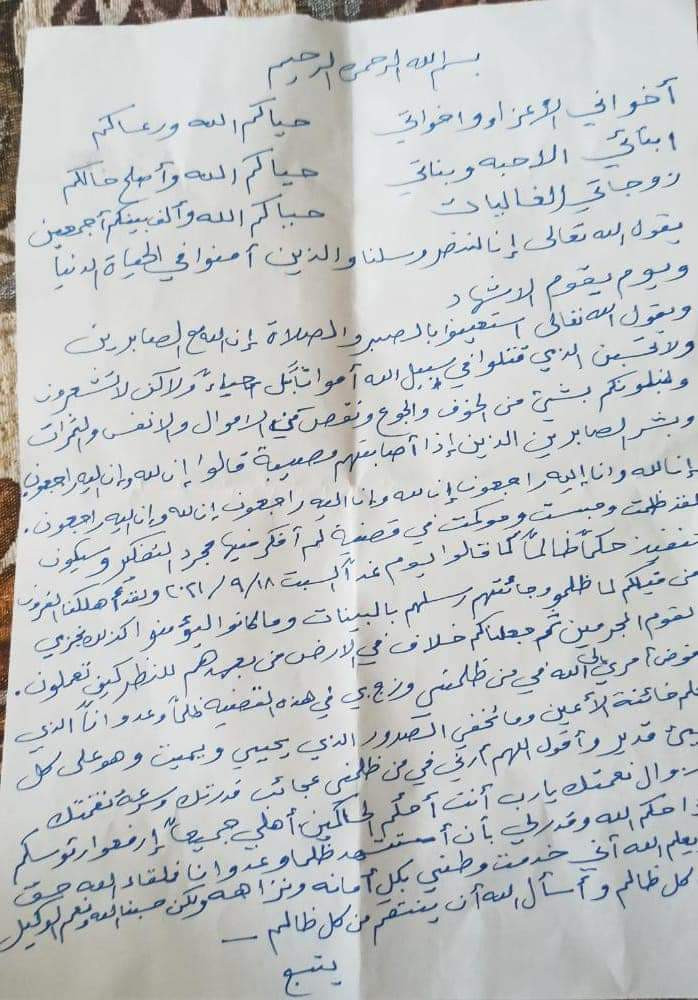 بسم الله الرحمن الرحيم
أخواني الأعزاء واخواتي حياكم الله ورعاكم
ابنائي الاحبه وبناتي حياكم الله وأصلح حالكم
زوجاتي الغاليات حياكم الله وألف بينكم أجمعين
يقول الله تعالى إنا لننصر رسلنا والذين أمنوا في الحياة الدنيا
ويوم يقوم الاشهاد
ويقول الله تعالى استعينوا بالصبر والصلاة إن الله مع الصابرين
ولا تحسبن الذي قتلوا في سبيل الله أمواتاً بل أحياءً ولاكن لا تشعرون
ولنبلونكم بشئ من الخوف والجوع ونقص من الاموال والانفس والثمرات
وبشر الصابرين الذين إذا أصابتهم مصيبة قالوا إن لله وإن اليه راجعون
إنا لله وانا إليه راجعون إن لله وإنا إليه راجعون إن لله وإن إليه راجعون.
فقد ظلمت وحبست وحوكمت في قضية لم أفكر فيها مجرد التفكير وسيكون
تنفيذ حكمًا ظالمًا كما قالوا ليوم غداً السبت ٢٠٢١/٩/١٨ ولقد أهلكنا القرون
من قبلكم لما ظلمو وجائتهم رسلهم بالبينات وما كانوا ليؤمنوا كذلك نجزي
القوم المجرمين ثم جعلناكم خلاف في الأرض من بعدهم للنظر كيف تعملون.
فوض أمري إلى الله في من ظلمني وزج بي في هذه القضيه ظلماً وعدواناً الذي
يعلم خائنة الأعين وما تخفي الصدور الذي يحيي ويميت وهو على كل
شئ قدير وأقول اللهم أرني في من ظلمني عجائب قدرتك وسرعة نقمتك
وزوال نعمتك يارب أنت أحكم الحاكمين أهلي جميعاً إرفعوا رئوسكم
احكم الله وقدر لي بأن أستشهد ظلما وعدوانا فلقاء الله حق
يعلم الله أني خدمت وطني بكل أمانه ونزاهه ولكن حسبنا الله ونعم الوكيل
كل ظالم وأسأل الله أن ينتقم من كل ظالم —
يتبع